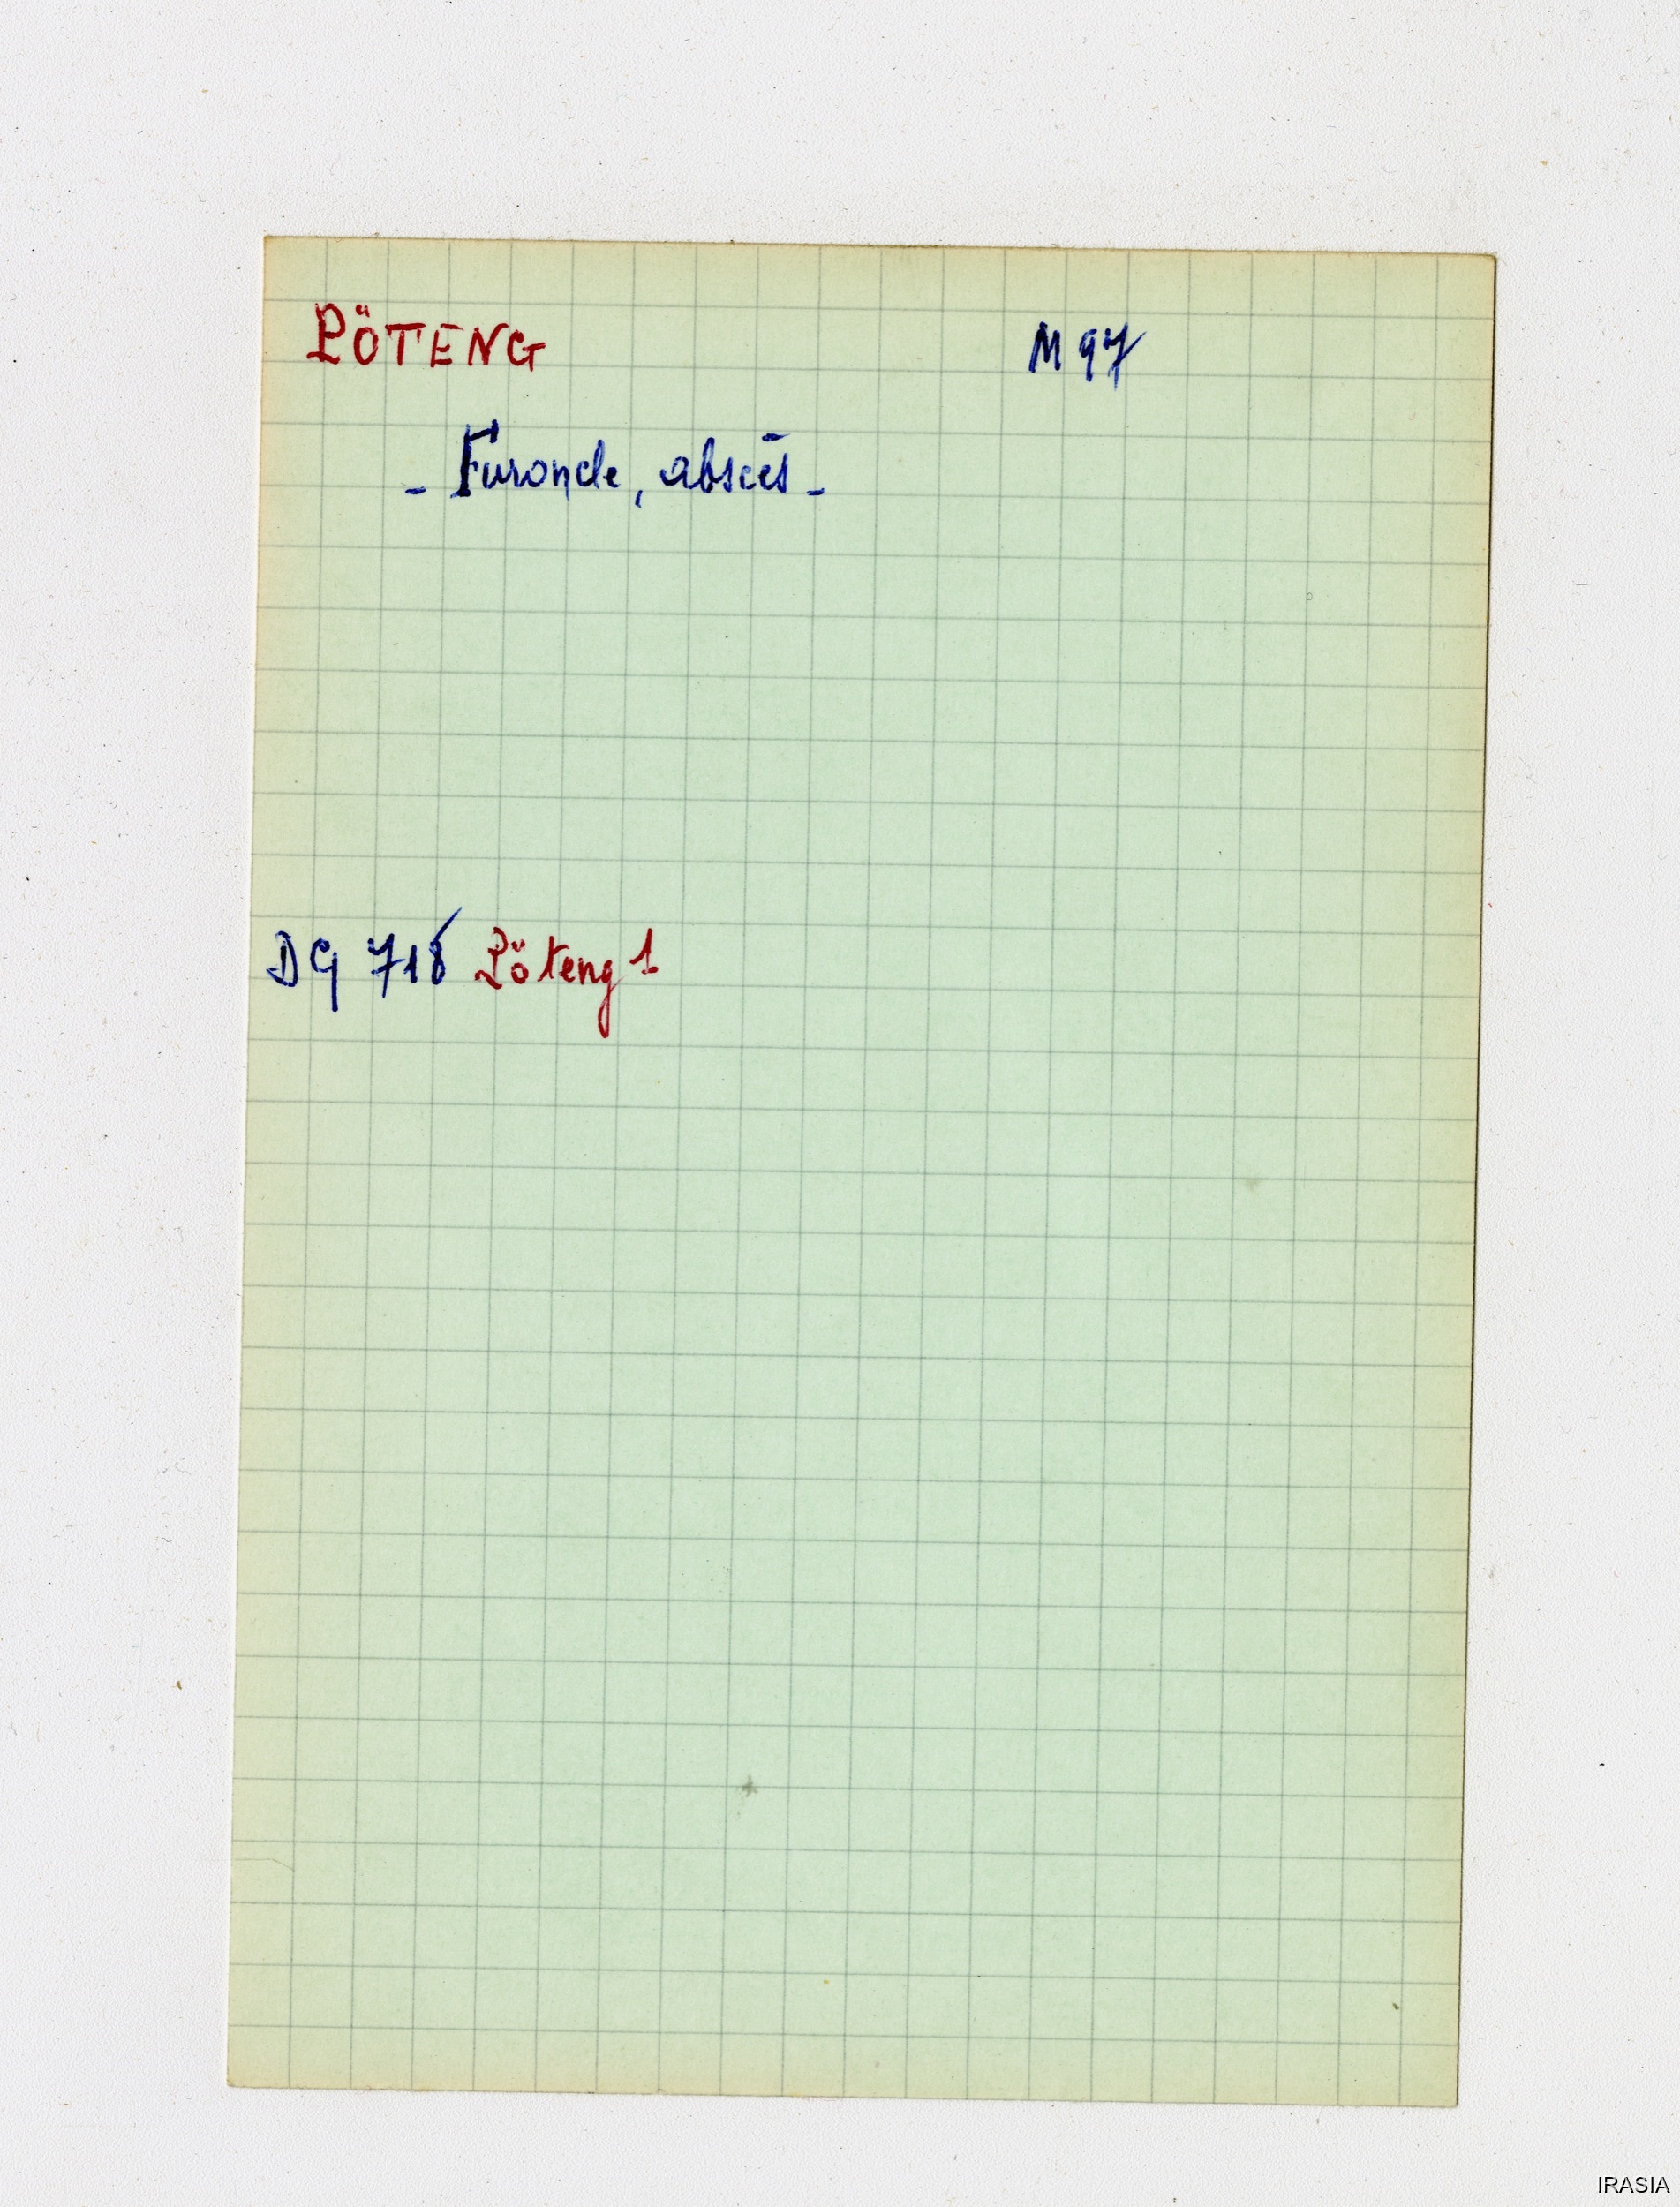 PÖTENG M 97
- Furoncle, abscès -
DG 718 Pöteng 1
IRASIA